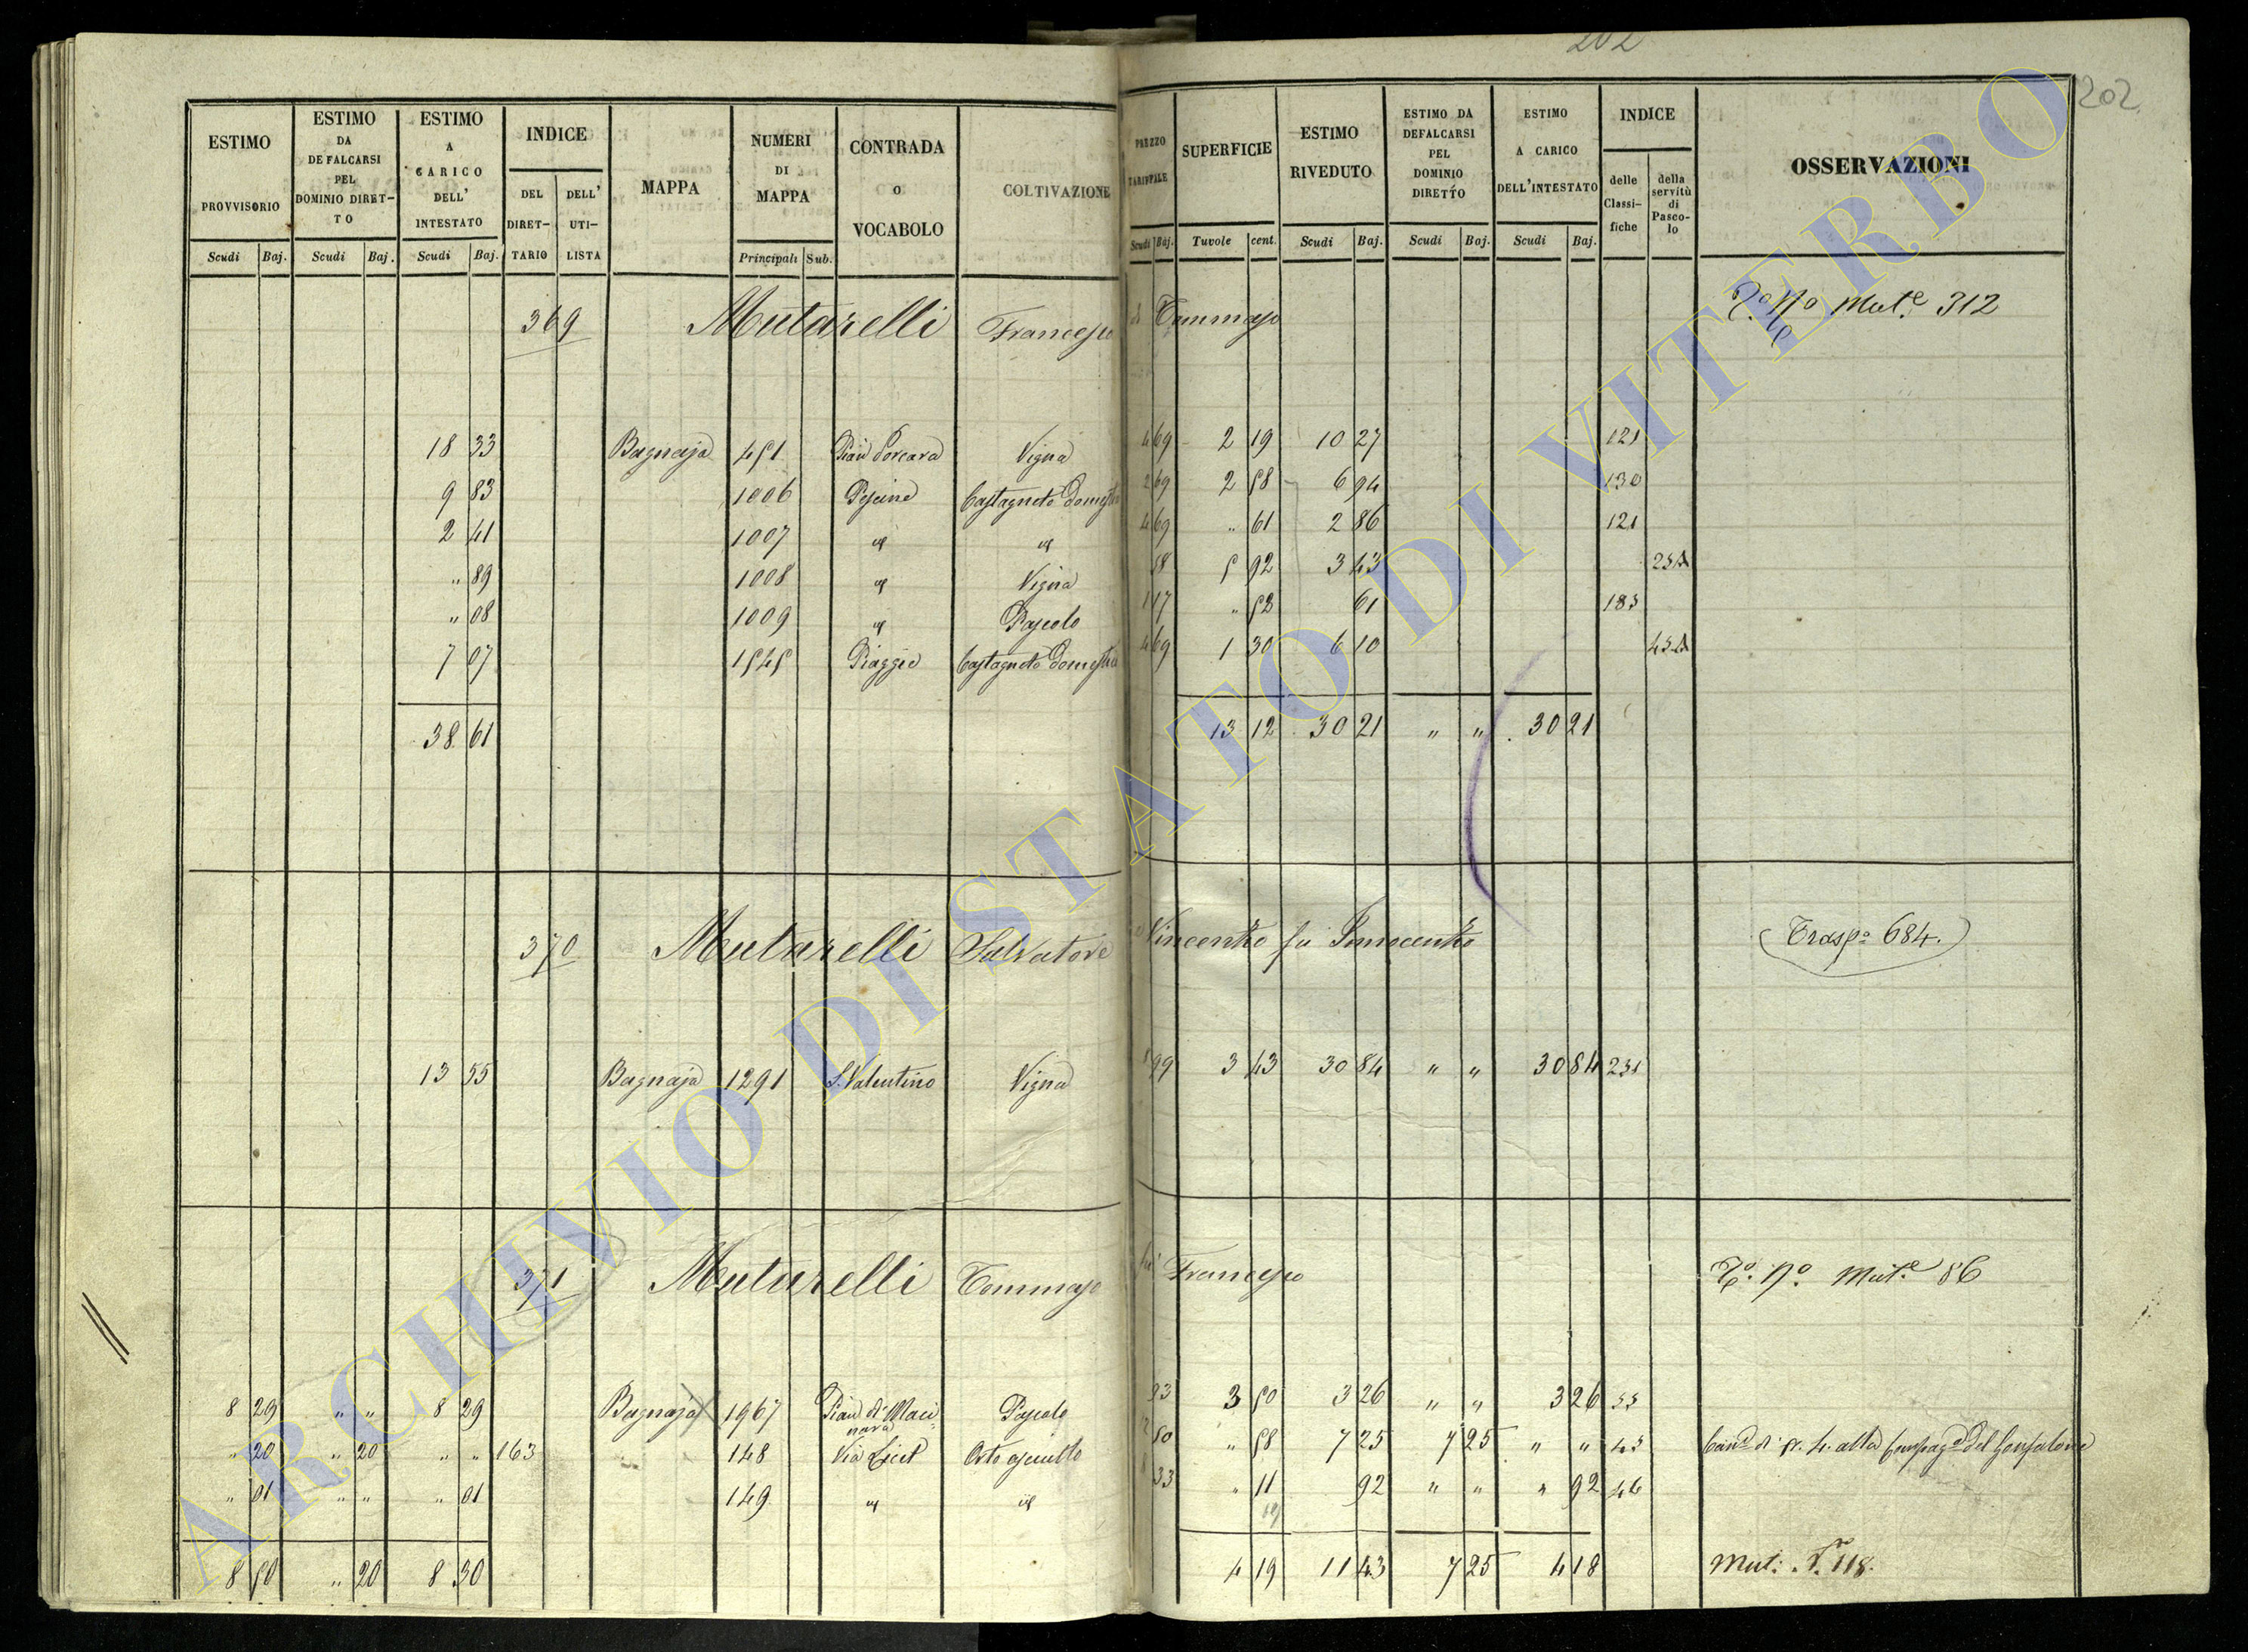 202
202
ESTIMO PROVVISORIO
ESTIMO DA DEFALCARSI PEL DOMINIO DIRET-TO
ESTIMO A CARICO DELL' INTESTATO
INDICE
DEL DIRET-TARIO
DELL' UTI-LISTA
MAPPA
NUMERI DI MAPPA
CONTRADA O VOCABOLO
COLTIVAZIONE
PREZZO TARIFFALE
SUPERFICIE
ESTIMO RIVEDUTO
ESTIMO DA DEFALCARSI PEL DOMINIO DIRETTO
ESTIMO A CARICO DELL'INTESTATO
INDICE
delle Classi-fiche
della servitù di Pasco-lo
OSSERVAZIONI
Scudi Baj. Scudi Baj. Scudi Baj. Principali Sub. Scudi Baj. Tavole cent. Scudi Baj. Scudi Baj. Scudi Baj.
369 Mutarelli Francesco di Tommaso Mut.e 312
18 33 Bagnaja 451 Pian Porcara Vigna 4 69 2 19 10 27 121
9 83 1006 Pescine Castagneto Domest 2 69 2 58 6 94 130
2 41 1007 id id 4 69 " 61 2 86 121
" 89 1008 id Vigna 58 5 92 3 43
" 08 1009 id Pascolo 1 17 " 52 61 183
7 07 1545 Piagge Castagneto Domest 4 69 1 30 6 10
38 61 13 12 30 21 " " 30 21
370 Mutarelli Salvatore Vincenzo fu Innocenzo (Trasp.o 684.)
13 55 Bagnaja 1291 S. Valentino Vigna 99 3 43 30 84 " " 30 84 231
371 Mutarelli Tommaso fu Francesco N.o Mut.e 86
8 29 " " 8 29 Bagnaja 1967 Pian di Maci=nara Pascolo 93 3 50 3 26 " " 3 26
" 20 " 20 " " 163 148 Via Orto asciutto 50 " 58 7 25 7 25 " " alla Compag.a del Gonfalone
" 01 " " " 01 149 id id 33 " 11 92 " " " 92 46
8 50 " 20 8 30 4 19 11 43 7 25 4 18 Mut: N. 118.
ARCHIVIO DI STATO DI VITERBO